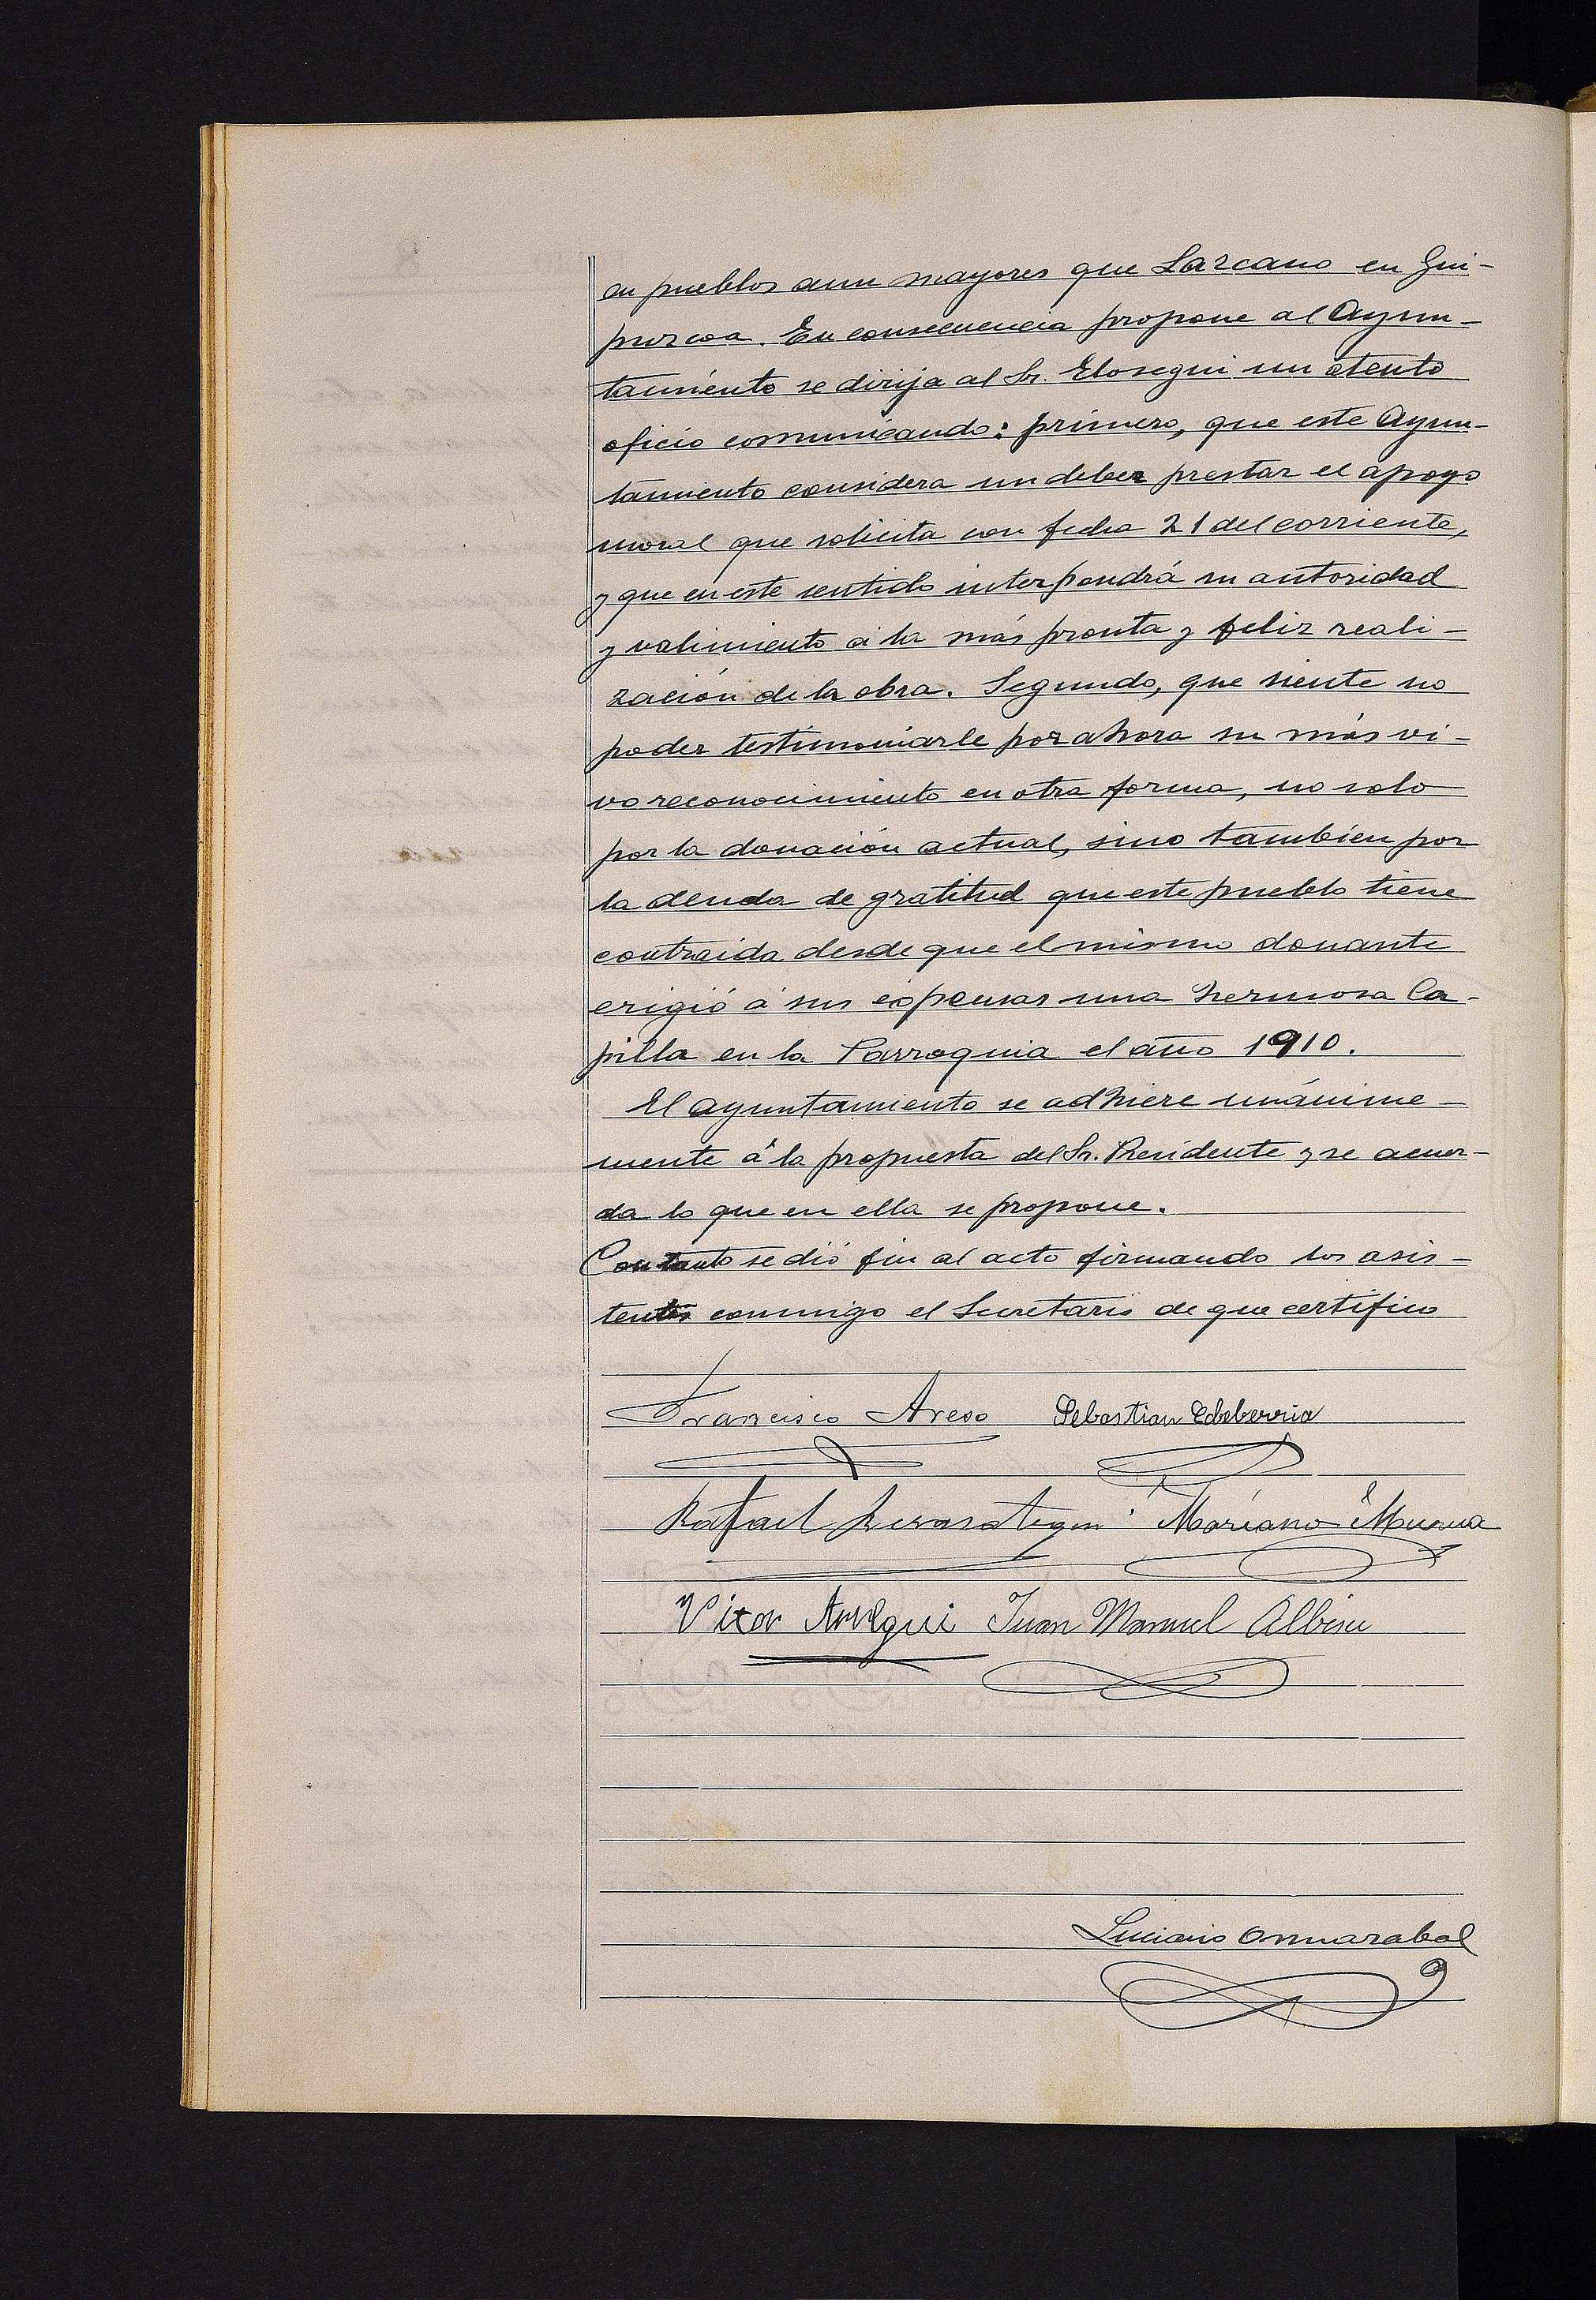 en pueblos aun mayores que Lazcano en Gui-
puzcoa. En consecuencia propone al Ayun-
tamiento se dirija al Sr. Elosegui un atento
oficio comunicando: primero, que este Ayun-
tamiento considera un deber prestar el apoyo
moral que solicita con fecha 21 del corriente,
y que en este sentido interpondrá su autoridad
y valimiento á la más pronta y feliz reali-
zación de la obra. Segundo, que siente no
poder testimoniarle por ahora su más vi-
vo reconocimiento en otra forma, no solo
por la donación actual, sino también por
la deuda de gratitud que este pueblo tiene
contraida desde que el mismo donante
erigió á sus expensas una hermosa Ca-
pilla en la Parroquia el año 1910.
El ayuntamiento se adhiere unánime-
mente á la propuesta del Sr. Presidente y se acuer-
da lo que en ella se propone.
Con tanto se dió fin al acto firmando los asis-
tentes conmigo el Secretario de que certifico
Francisco Areso Sebastian Echeberria
Rafael Mariano Murua
Vitor Juan Manuel Albisu
Luciano